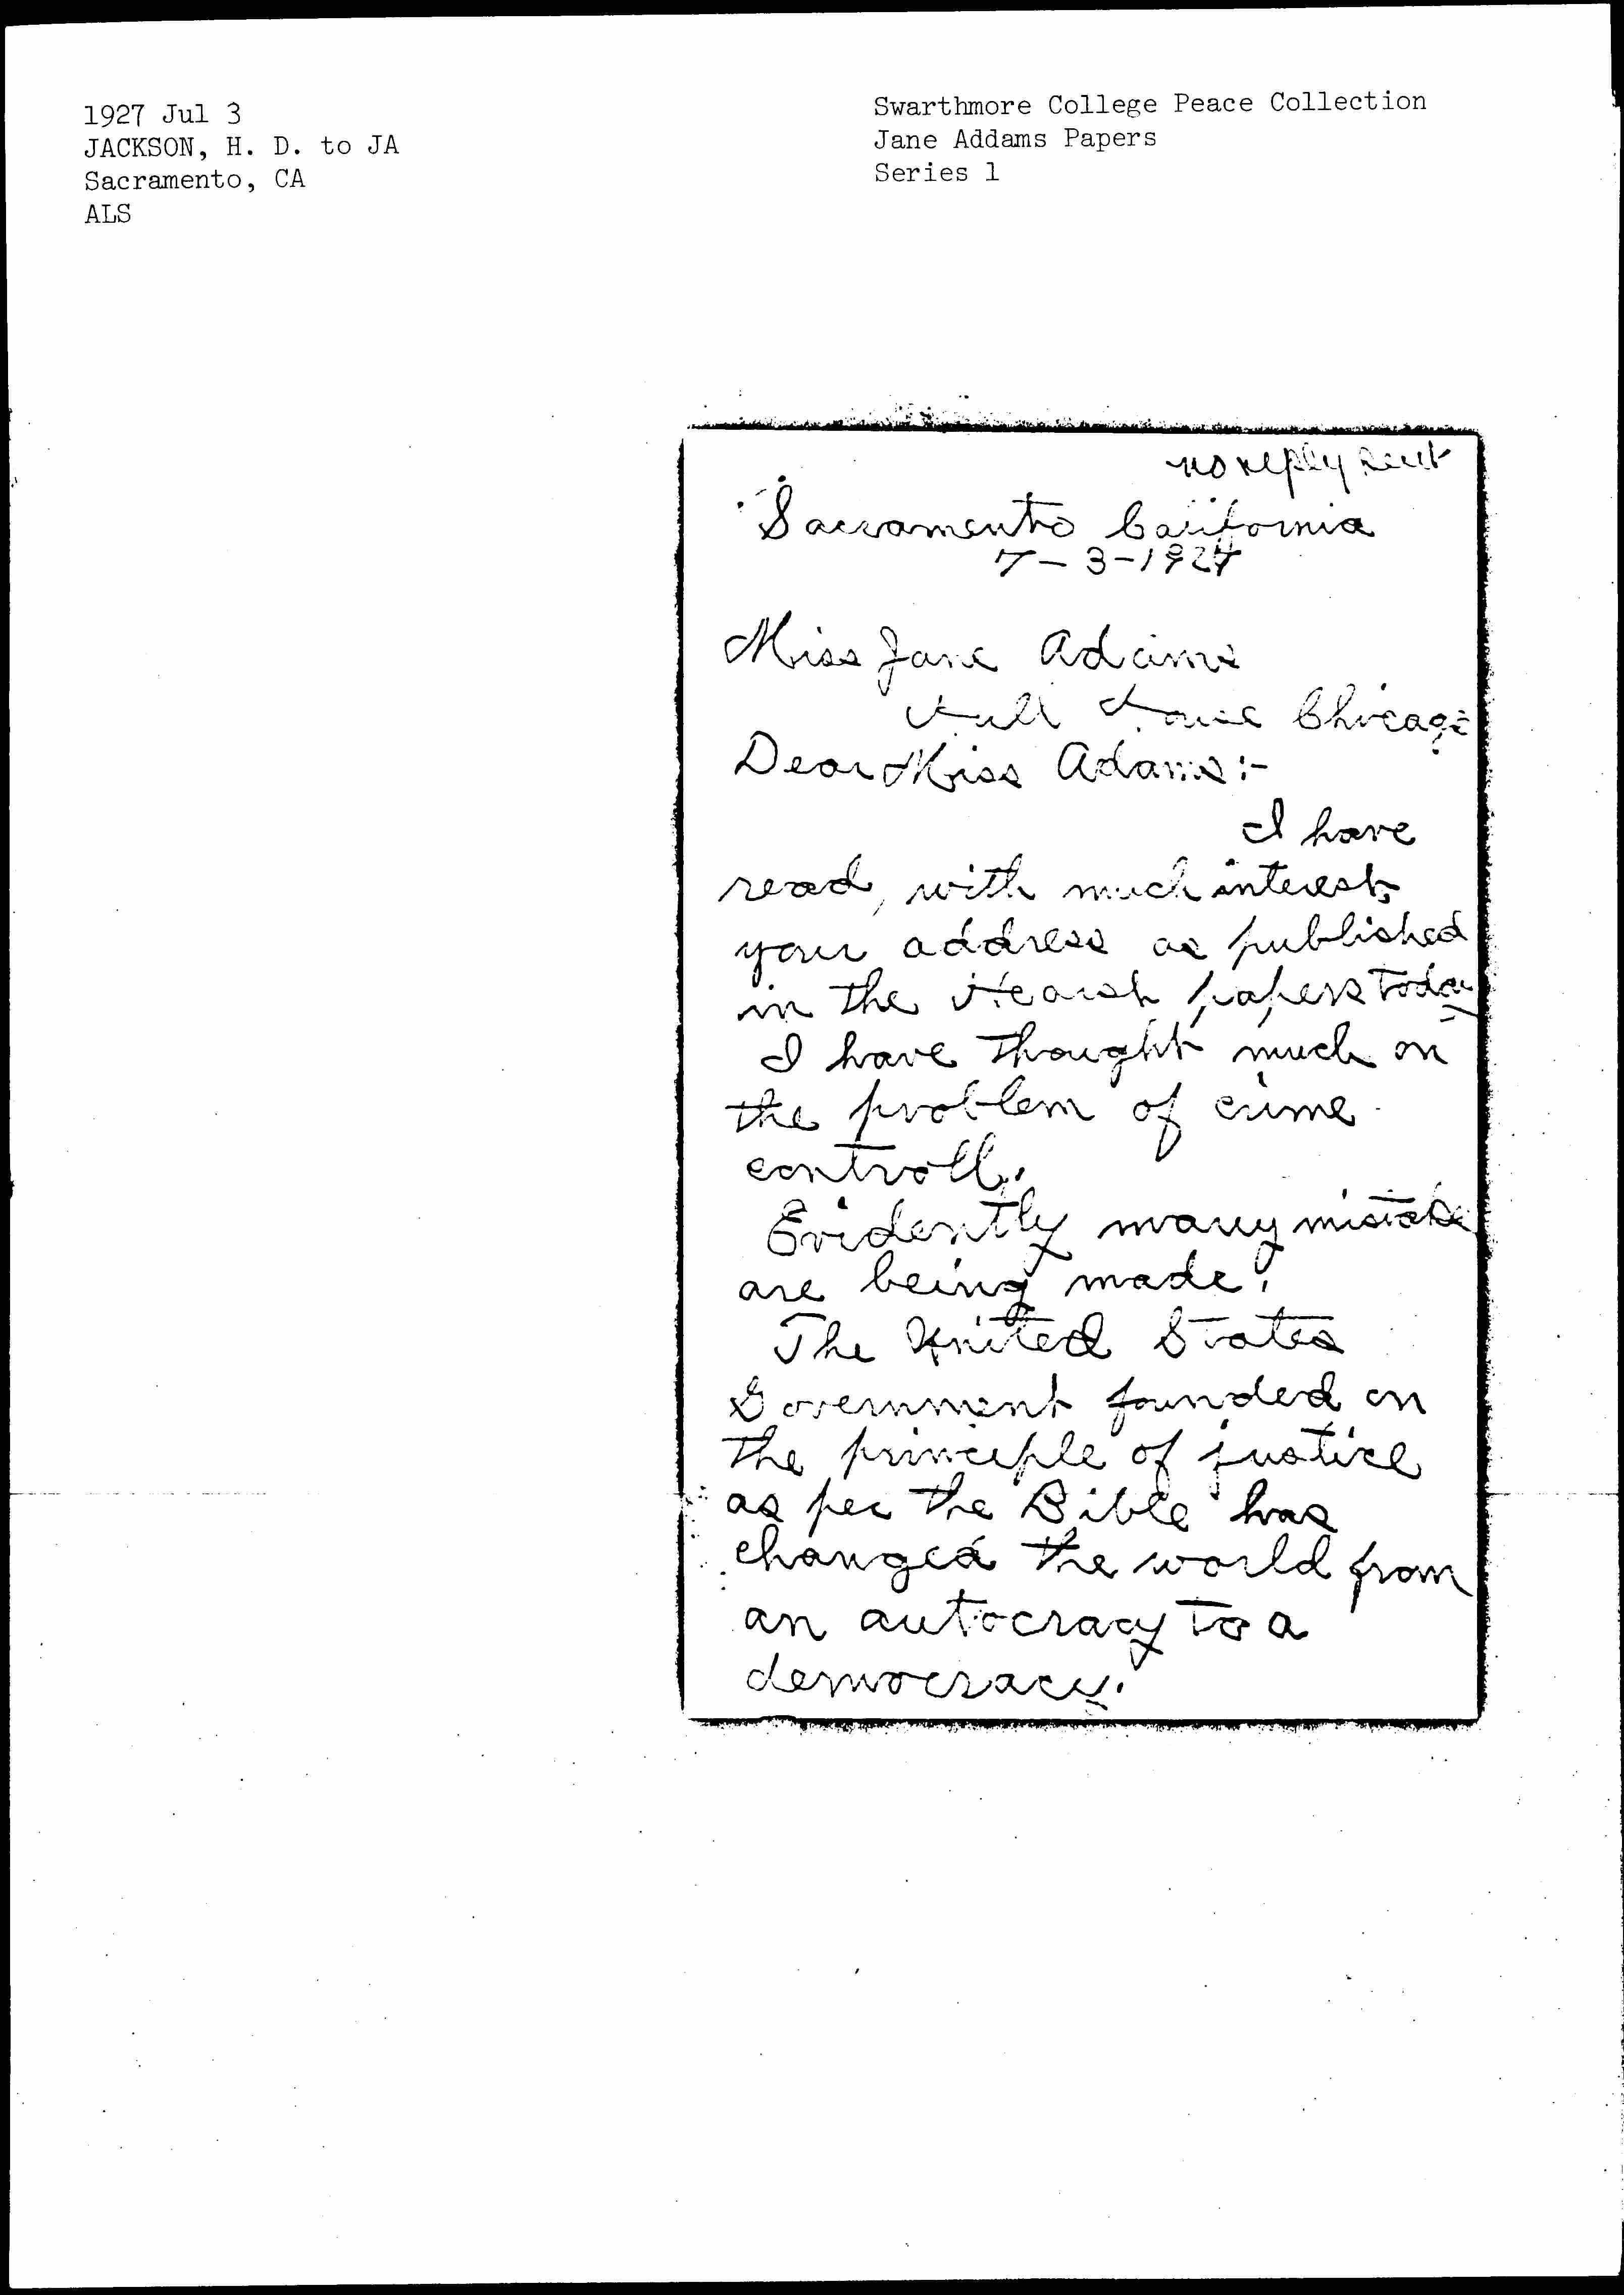 1927 Jul 3
JACKSON, H. D. to JA
Sacramento, CA
ALS
Swarthmore College Peace Collection
Jane Addams Papers
Series 1
no reply sent
Sacramento California
7-3-1927
Miss Jane Adams
Hull House Chicago
Dear Miss Adams:-
I have
read, with much interest,
your address as published
in the Hearst papers today
I have thought much on
the problem of crime
controll.
Evidently many mistake
are being made.
The United States
Government founded on
the principle of justice
as per the Bible has
changed the world from
an autocracy to a
democracy.